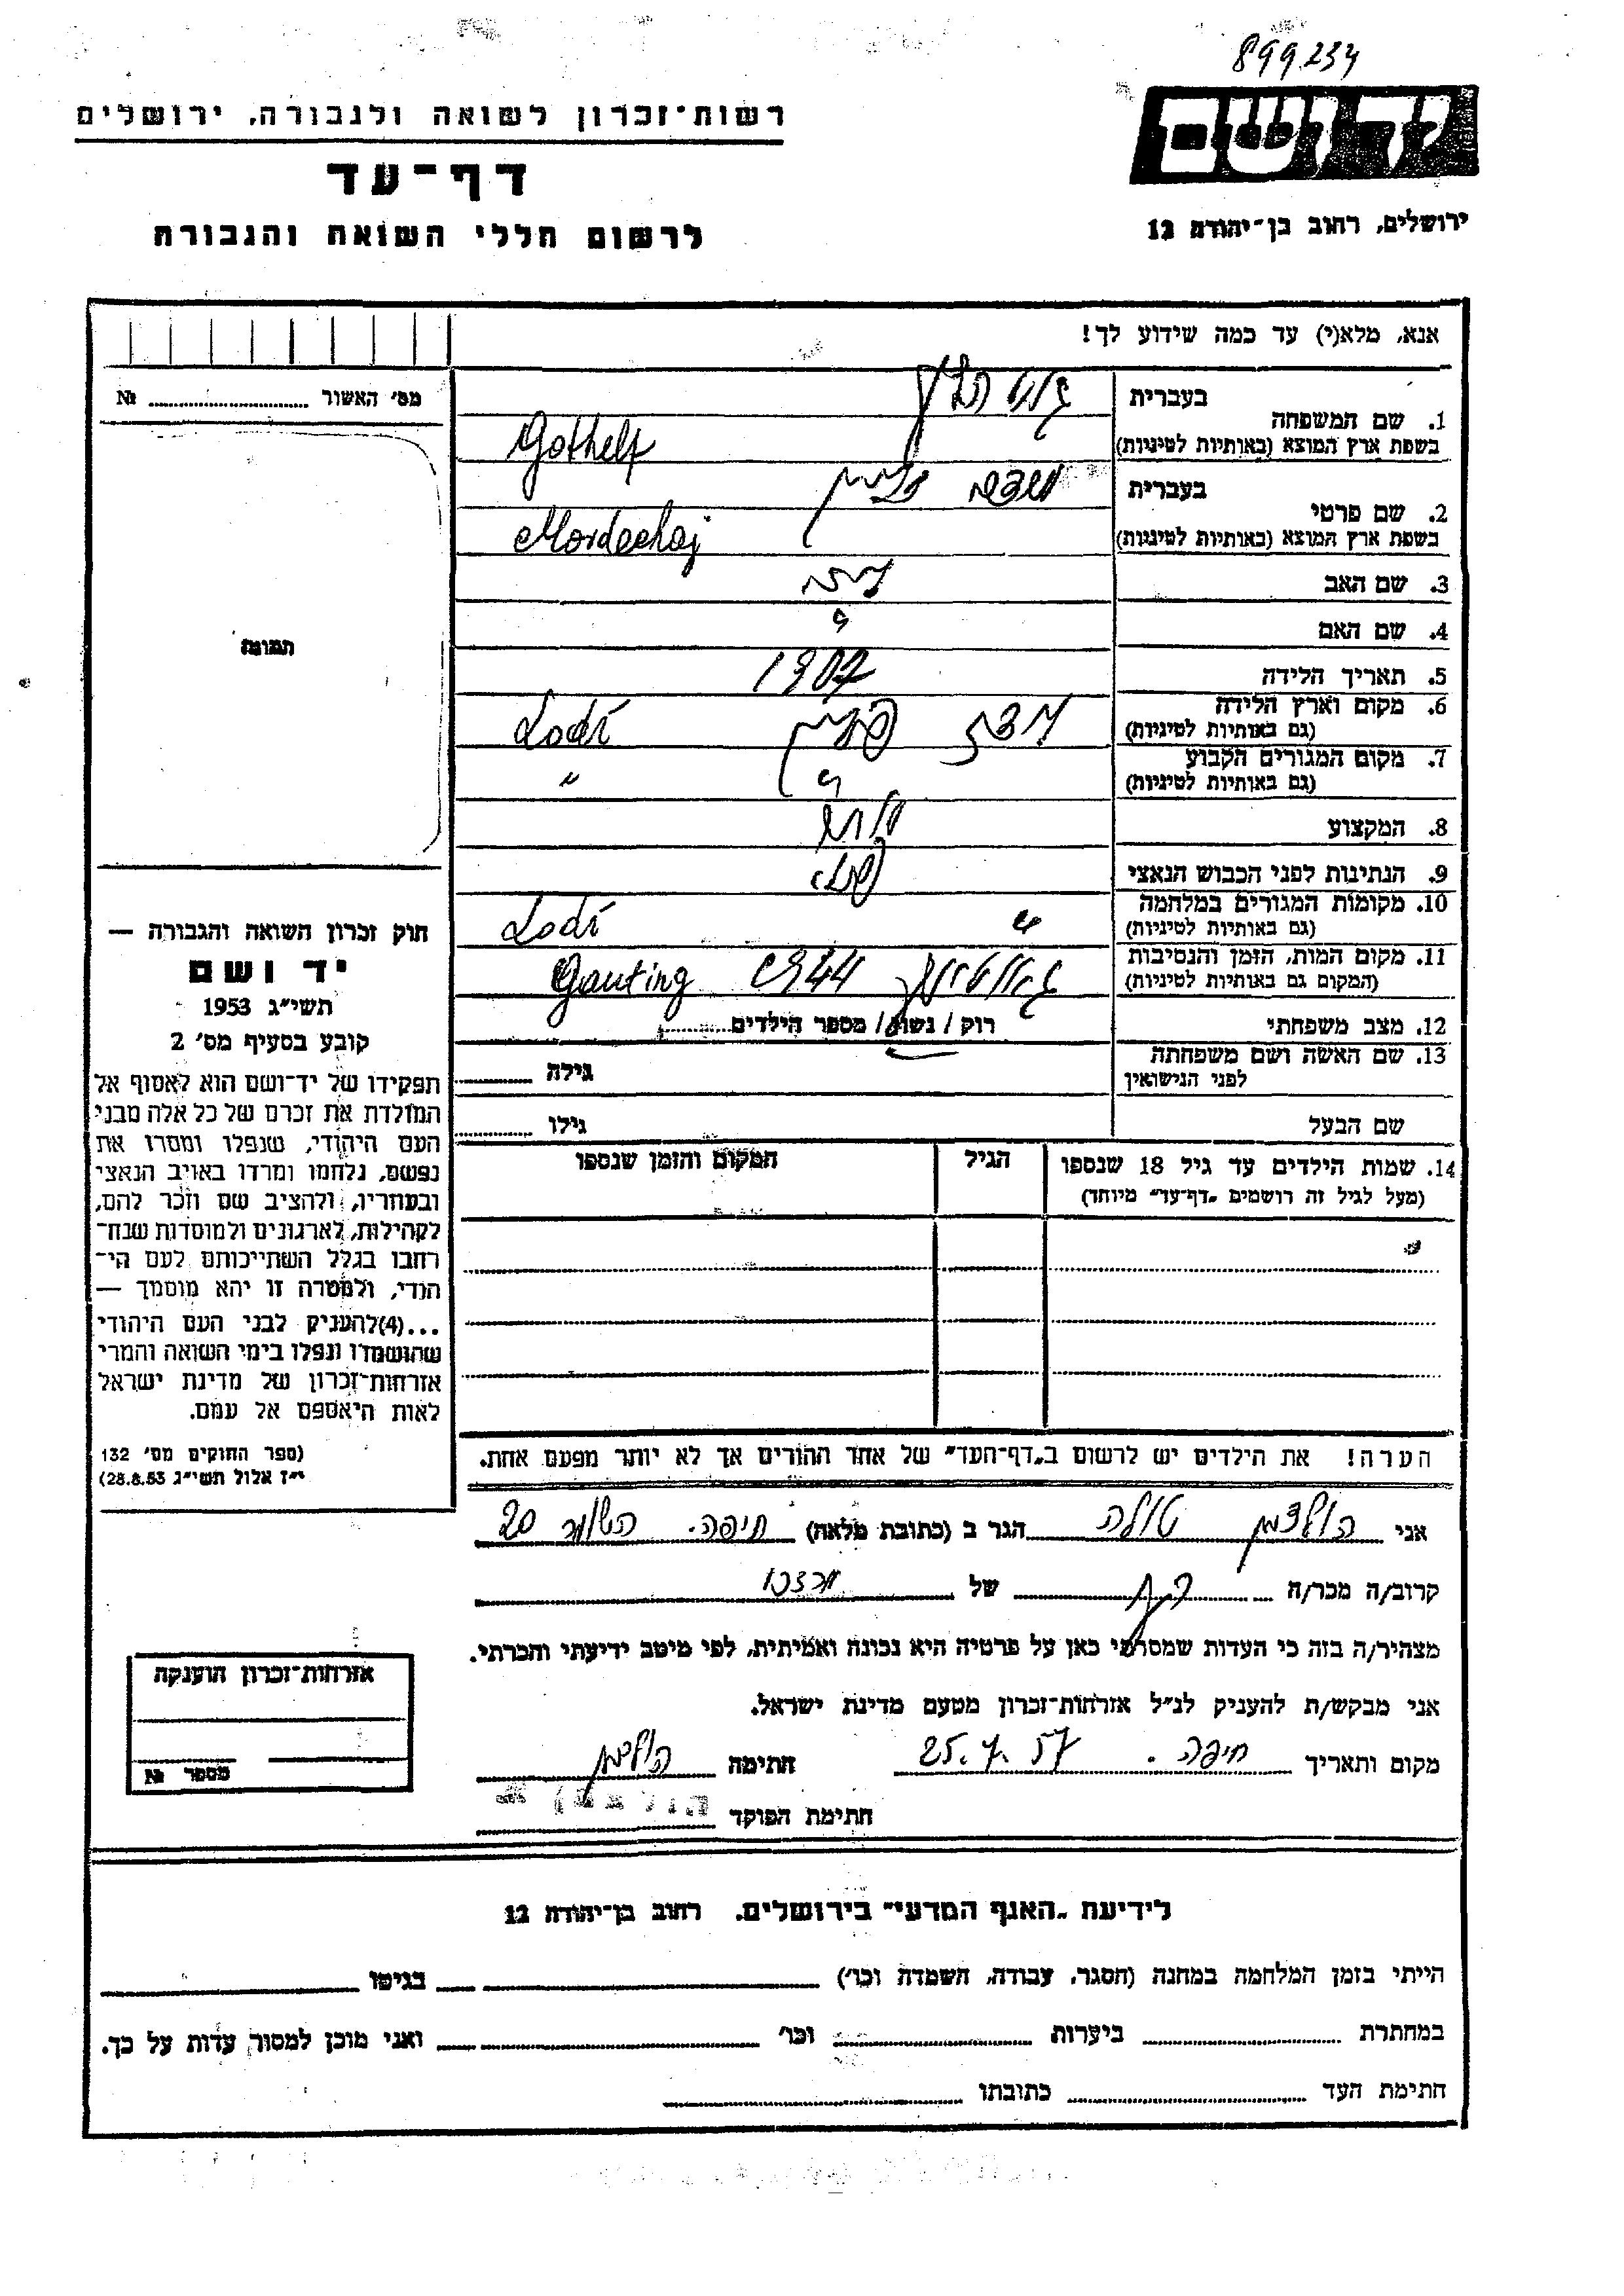 899234
יד ושם
ירושלים, רחוב בן־יהודה 12
רשות־זכרון לשואה ולגבורה, ירושלים
דף־עד
לרשום חללי השואה והגבורה
אנא, מלא(י) עד כמה שידוע לך!
מס׳ האשור № ........
תמונה
1. שם המשפחה
בעברית גוטהלף
בשפת ארץ המוצא (באותיות לטיניות) Gothelf
2. שם פרטי
בעברית
בשפת ארץ המוצא (באותיות לטיניות) Mordechaj
3. שם האב
4. שם האם ?
5. תאריך הלידה 1907
6. מקום וארץ הלידה
(גם באותיות לטיניות) לודז פולין Lodź
7. מקום המגורים הקבוע
(גם באותיות לטיניות) " "
8. המקצוע
9. הנתינות לפני הכבוש הנאצי פולני
10. מקומות המגורים במלחמה
(גם באותיות לטיניות) " Lodź
11. מקום המות, הזמן והנסיבות
(המקום גם באותיות לטיניות) גאוטינג 1944 Gauting
12. מצב משפחתי רוק / נשוי / מספר הילדים........
13. שם האשה ושם משפחתה
לפני הנישואין גילה ........
שם הבעל גילו ........
14. שמות הילדים עד גיל 18 שנספו
(מעל לגיל זה רושמים "דף־עד" מיוחד)
הגיל
המקום והזמן שנספו
הערה! את הילדים יש לרשום ב"דף־העד" של אחד ההורים אך לא יותר מפעם אחת.
חוק זכרון השואה והגבורה —
יד ושם
תשי״ג 1953
קובע בסעיף מס׳ 2
תפקידו של יד־ושם הוא לאסוף אל
המולדת את זכרם של כל אלה מבני
העם היהודי, שנפלו ומסרו את
נפשם, נלחמו ומרדו באויב הנאצי
ובעוזריו, ולהציב שם וזכר להם,
לקהילות, לארגונים ולמוסדות שנח־
רבו בגלל השתייכותם לעם הי־
הודי, ולמטרה זו יהא מוסמך —
...(4)להעניק לבני העם היהודי
שהושמדו ונפלו בימי השואה והמרי
אזרחות־זכרון של מדינת ישראל
לאות היאספם אל עמם.
(ספר החוקים מס׳ 132
י״ז אלול תשי״ג 28.8.53)
אני הולצמן טולה הגר ב (כתובת מלאה) חיפה. השומר 20
קרוב/ה מכר/ה ... של
מצהיר/ה בזה כי העדות שמסרתי כאן על פרטיה היא נכונה ואמיתית, לפי מיטב ידיעתי והכרתי.
אני מבקש/ת להעניק לנ״ל אזרחות־זכרון מטעם מדינת ישראל.
מקום ותאריך חיפה. 25.7.57 חתימה הולצמן
חתימת הפוקד
אזרחות־זכרון הוענקה
מספר №
לידיעת "האגף המדעי" בירושלים, רחוב בן־יהודה 12
הייתי בזמן המלחמה במחנה (הסגר, עבודה, השמדה וכו׳) בגיטו
במחתרת ביערות וכו׳ ואני מוכן למסור עדות על כך.
חתימת העד כתובתו